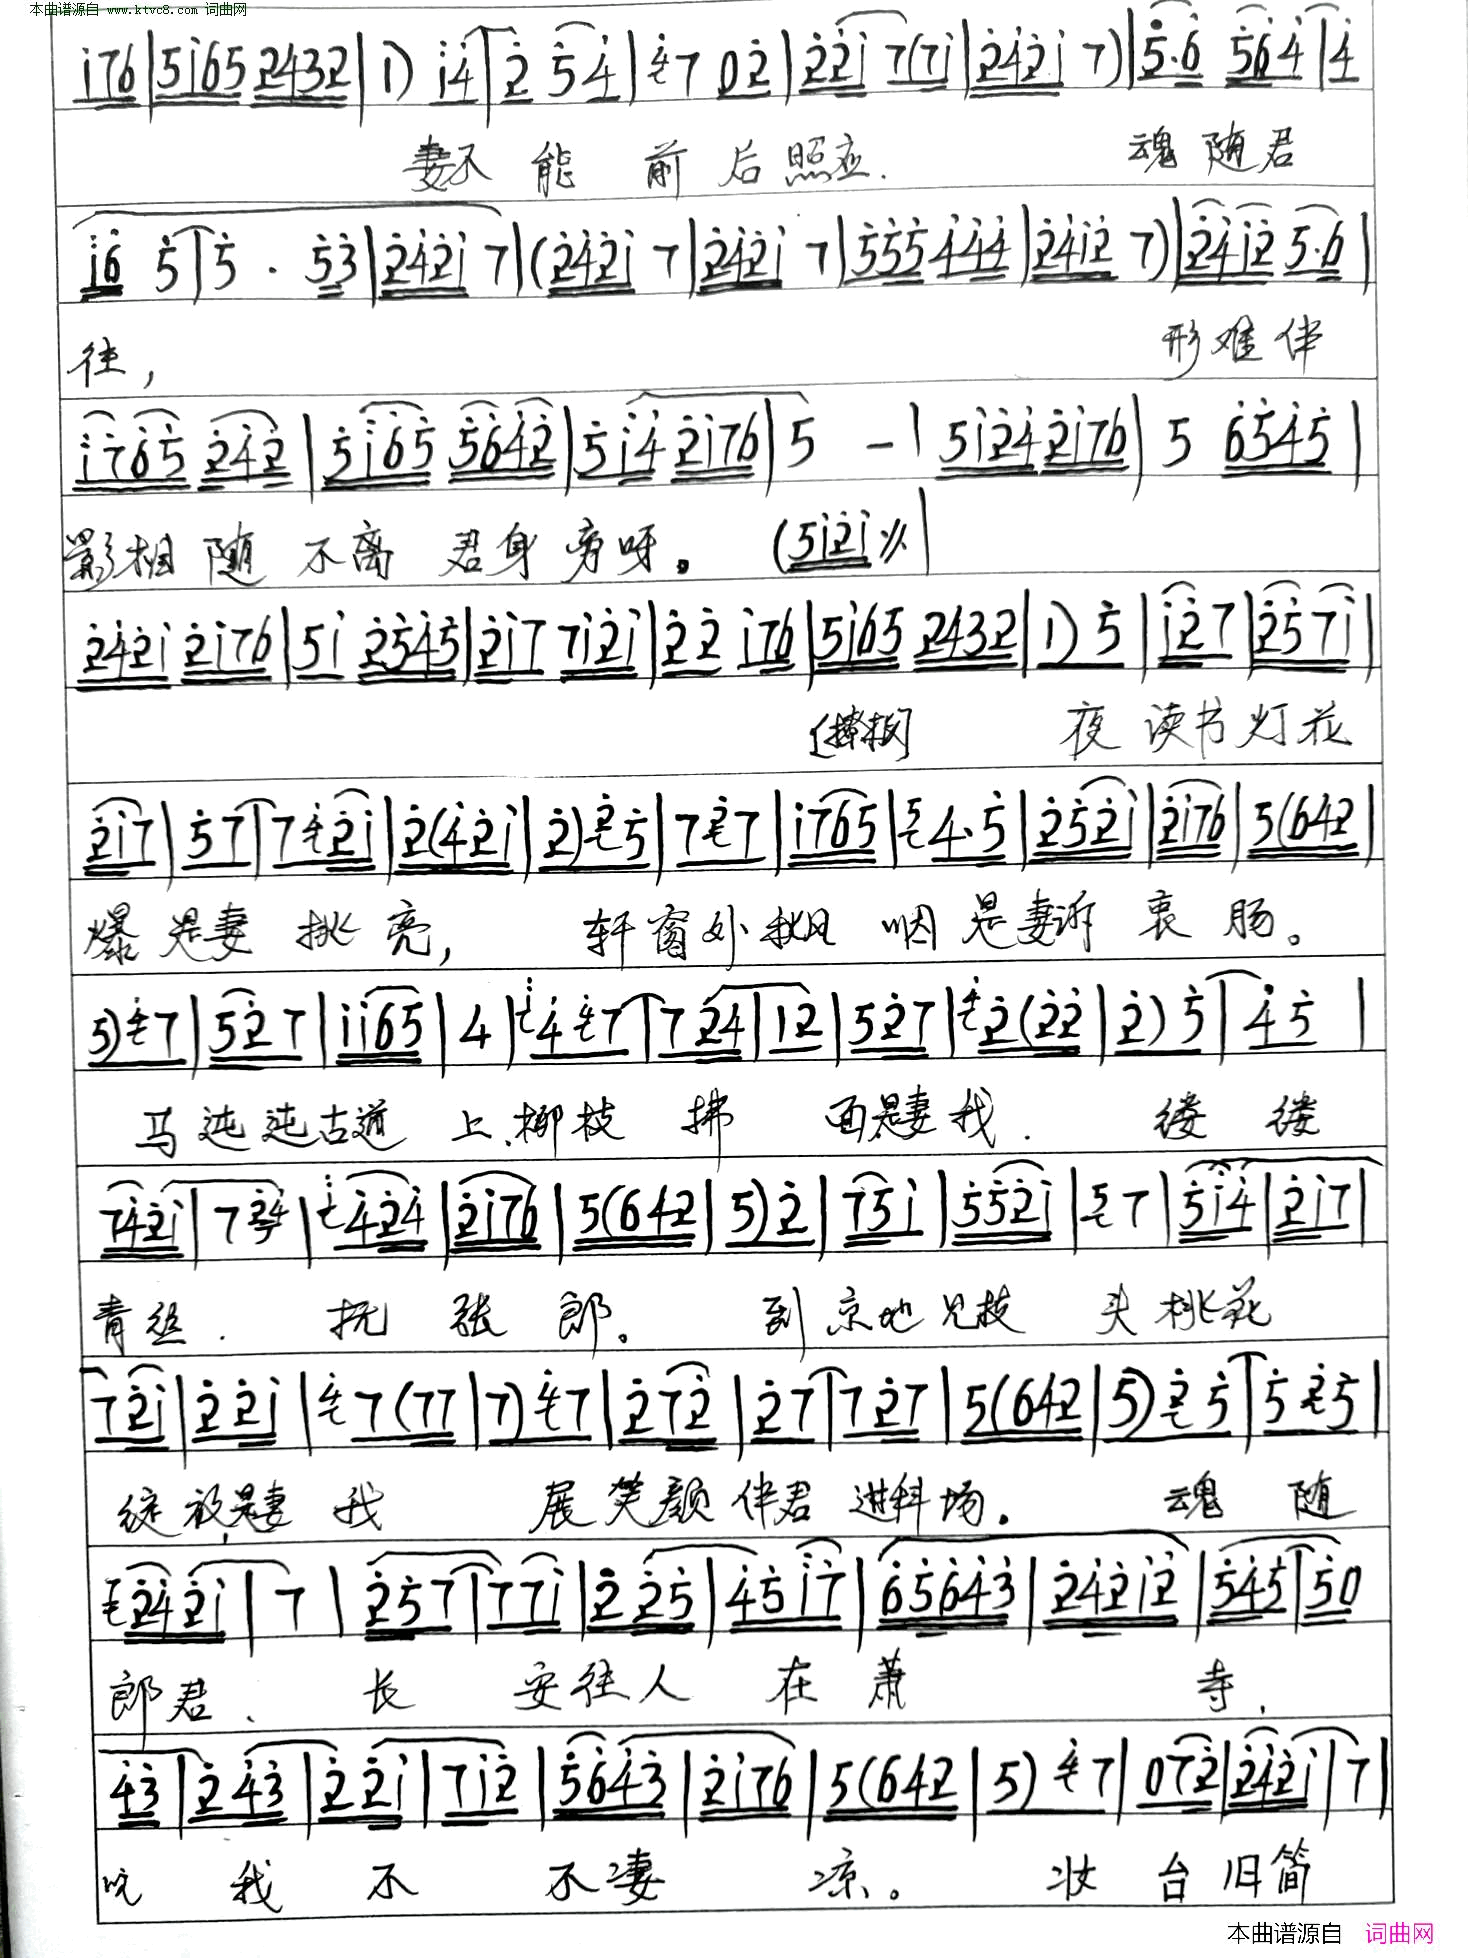 本曲谱源自 www.ktvc8.com 词曲网
i76|5i65 2432|1) i4|2 54|47 02|22i 7(7i|242i 7)|5·6 564|4
妻不能前后照应. 魂随君
i6 5|5 · 53|242i 7|(242i 7|242i 7|555 444|24i2 7)|24i2 5·6|
往, 形难伴
i765 242|5i65 5642|5i4 2i76|5 -|5i24 2i76|5 6545|
影相随不离君身旁呀。 (5i2i
242i 2i76|5i 2545|2i7 7i2i|22 i76|5i65 2432|1) 5|i27|257i|
夜读书灯花
2i7|57|7 4 2i|2(42i|2) 2 5|7 2 7|i765|5 4·5|252i|2i76|5(642|
爆是妻挑亮, 轩窗外秋风咽是妻诉衷肠。
5) 4 7|527|ii65|4|i 4 4 7|7 24|12|527|4 2(22|2) 5|45|
马迍迍古道上、柳枝拂面是妻我. 缕缕
742i|7 24|i 424|2i76|5(642|5) 2|75i|552i|5 7|5i4|2i7|
青丝. 抚张郎。 到京地见枝头桃花
72i|22i|4 7(77|7) 4 7|272|27|727|5(642|5) 2 5|5 2 5|
绽放,是妻我 展笑颜伴君进科场。 魂随
7 242i|7|257|77i|225|45i7|65643|242i2|545|50
郎君、长安往人在萧寺,
43|243|22i|7i2|5643|2i76|5(642|5) 4 7|072|242i|7|
吭我不不凄凉。 妆台旧简
本曲谱源自 词曲网